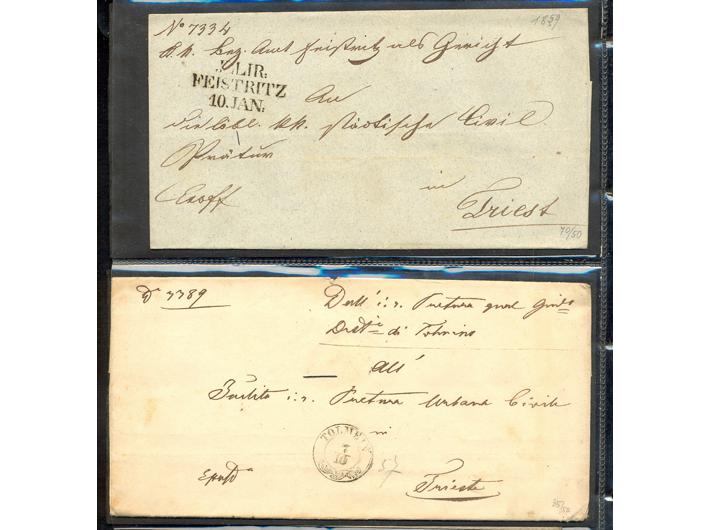 No 7334
1859
K. k. Bez. Amt Feistritz als Gericht
ILLIR.
FEISTRITZ
10. JAN.
An
die löbl. kk. städtische Civil
Prätur
in
Exoff
Triest
70/50
No 3389
Dall' i: r. Pretura qual Giud.
Dist. di Tolmino
All'
i: r. Pretura Urbana Civile
in
TOLMEIN
7
10
57
Trieste